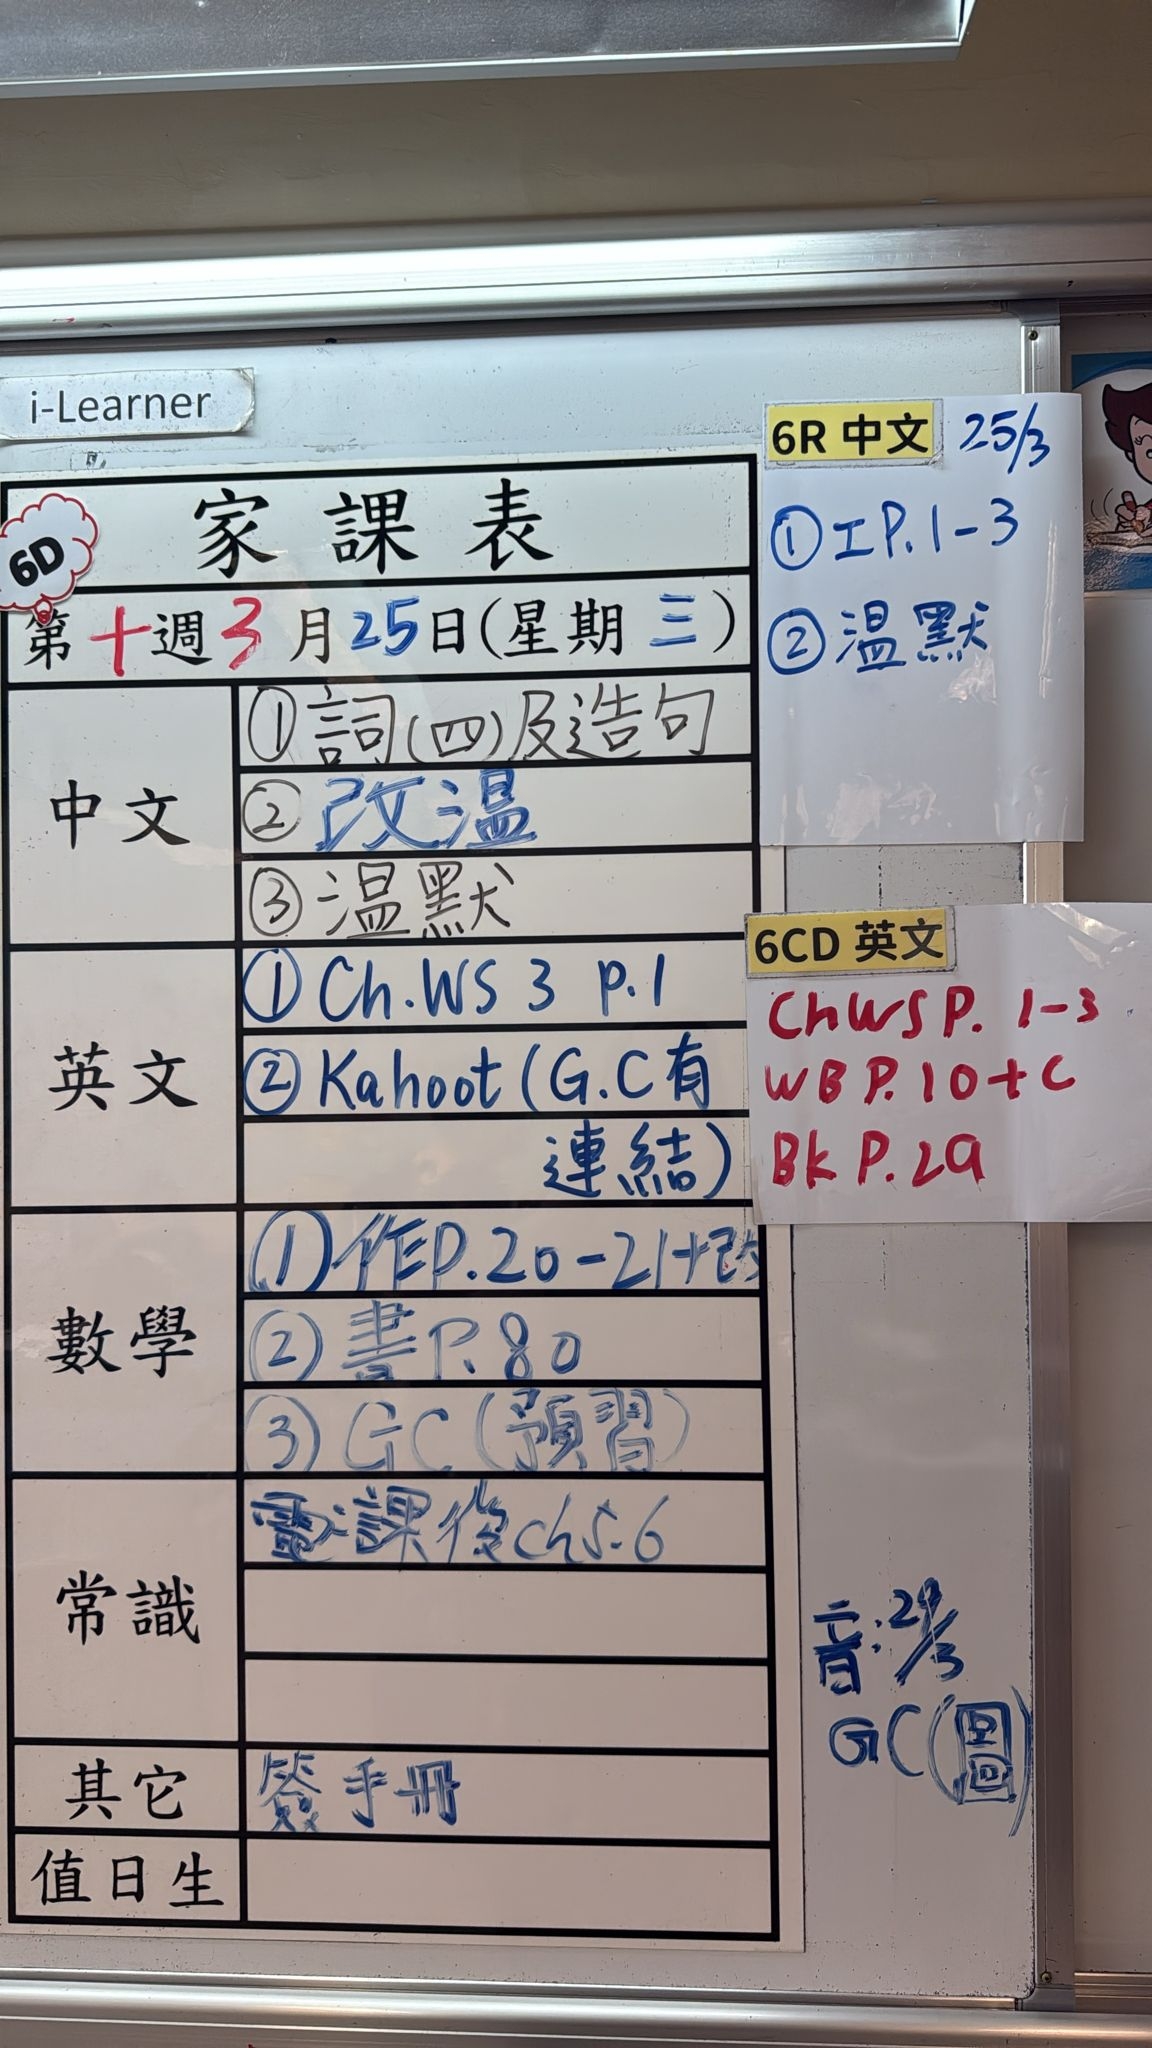 i-Learner
6D
家課表
第十週3月25日(星期三)
中文
①詞(四)及造句
②改溫
③溫默
英文
①Ch.WS 3 P.1
②Kahoot(G.C有
連結)
數學
①作P.20-21+改
②書P.80
③GC(預習)
常識
電:課後ch5.6
其它
簽手冊
值日生
6R 中文 25/3
①工P.1-3
②溫默
6CD 英文
ChWS P. 1-3
WB P.10+C
BK P.29
音:29/3
GC(圖)